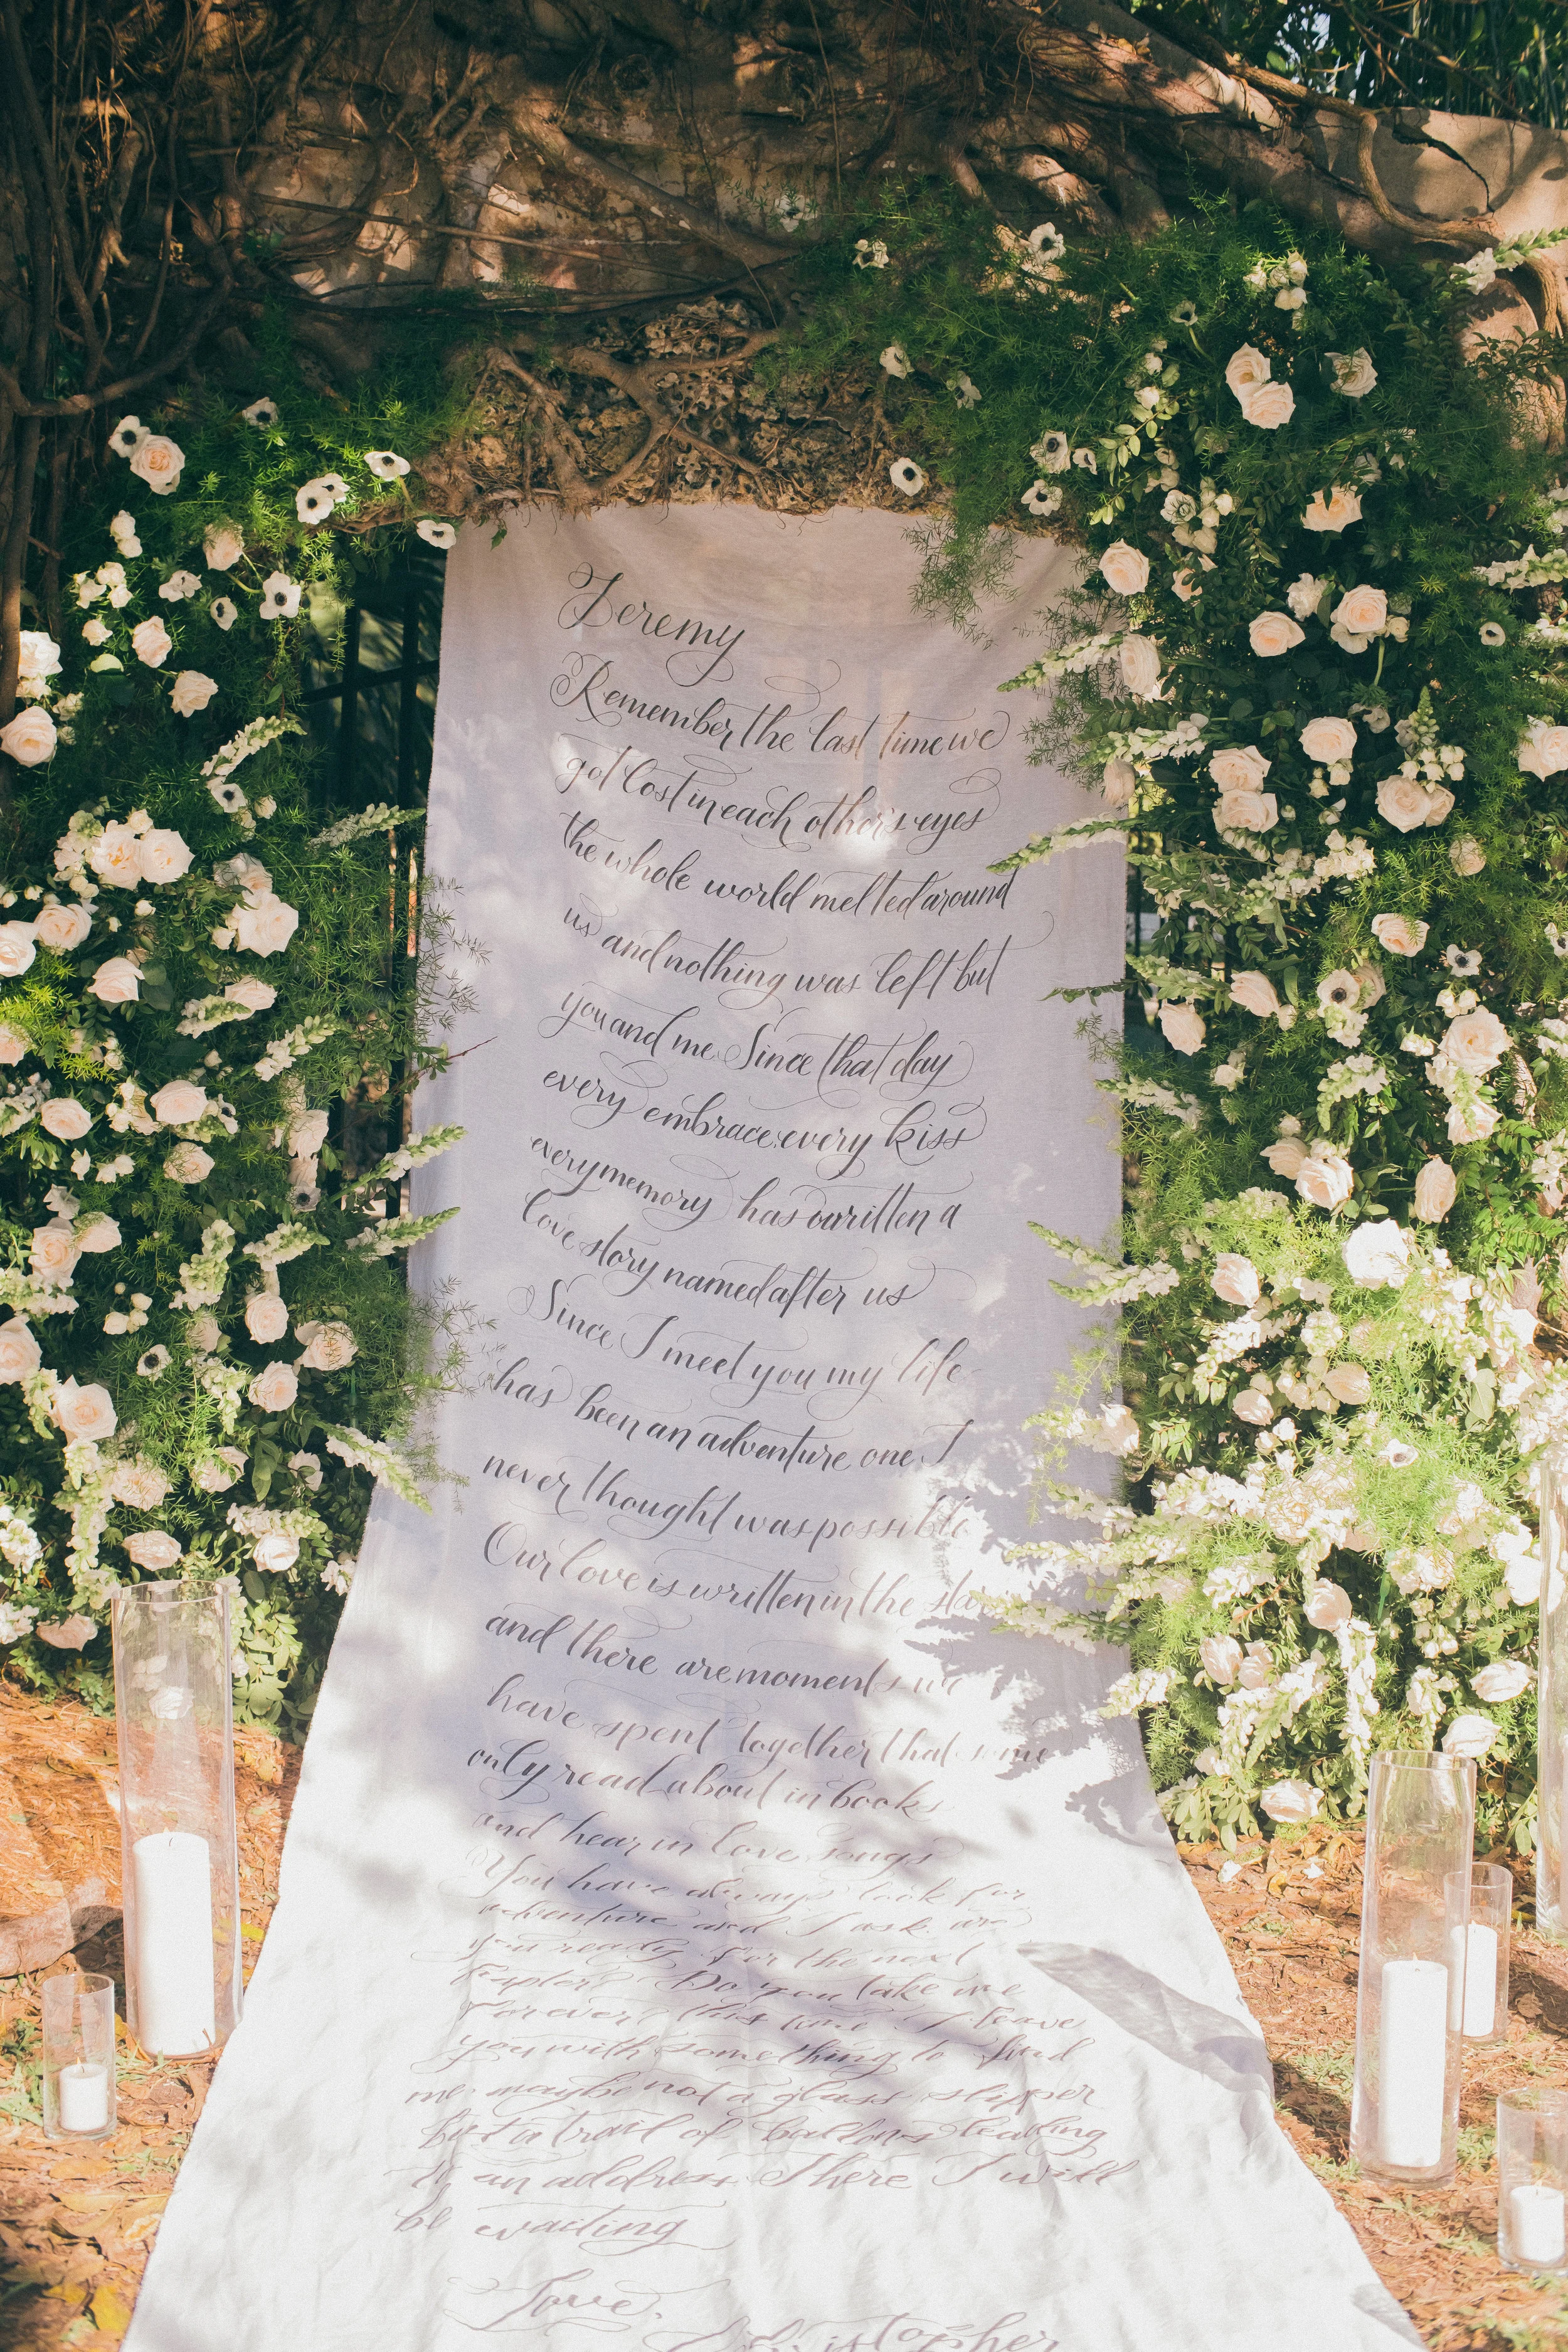 Jeremy
Remember the last time we
got lost in each other's eyes
the whole world melted around
us and nothing was left but
you and me. Since that day
every embrace, every kiss
every memory has written a
love story named after us
Since I meet you my life
has been an adventure one I
never thought was possible
Our love is written in the stars
and there are moments we
have spent together that some
only read about in books
and hear in love songs
You have always look for
adventure and I ask are
you ready for the next
Do you take me
forever? this time I leave
you with something to find
me maybe not a glass slipper
but a trail of ballons leading
to an address There I will
be waiting
Love,